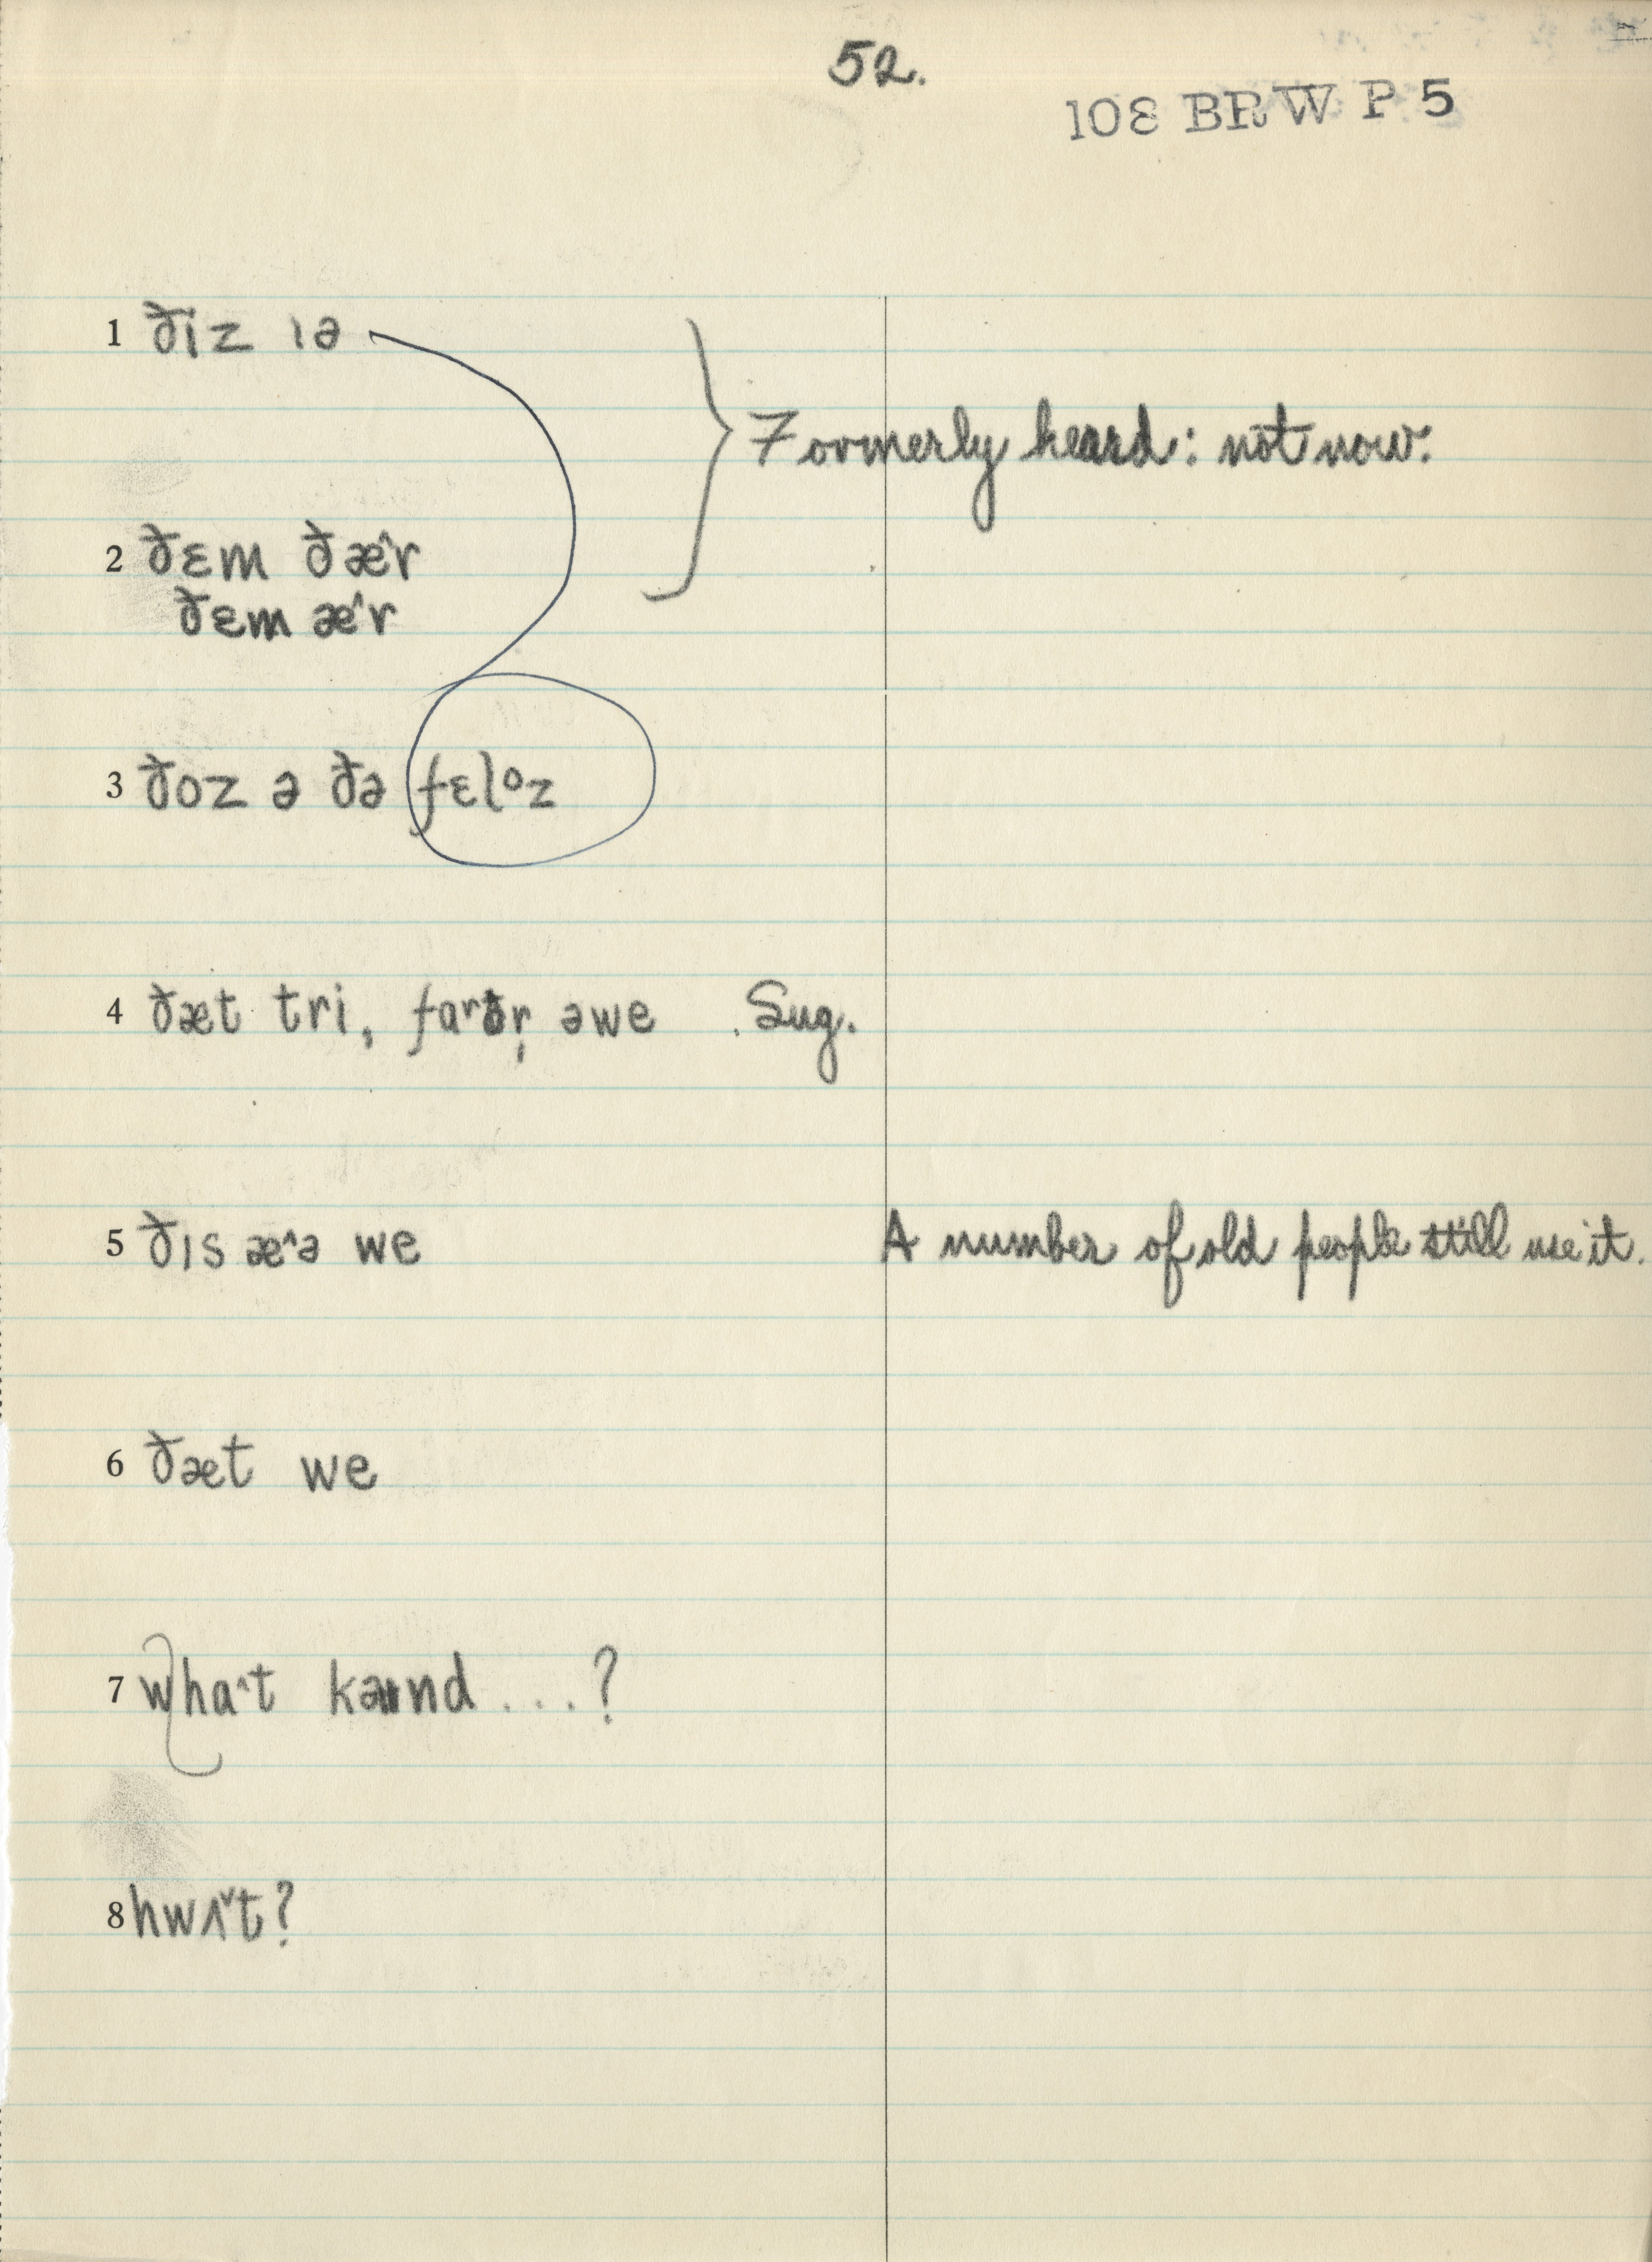 52.
108 BRW P 5
1 ðiz ɪə
Formerly heard: not now.
2 ðɛm ðæ^r
ðɛm æ^r
3 ðoz ə ðə fɛlᵒz
4 ðæt tri, farðr̩ əwe . Sug.
5 ðɪs æ^ə we A number of old people still use it.
6 ðæt we
7 wha^t kaɪnd ...?
8 hwʌˇt?